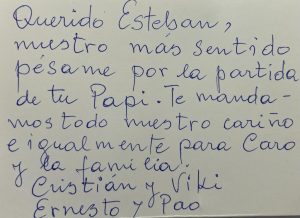 Querido Esteban,
nuestro más sentido
pésame por la partida
de tu Papi. Te manda-
mos todo nuestro cariño
e igualmente para Caro
y la familia.
Cristián y Viki
Ernesto y Pao